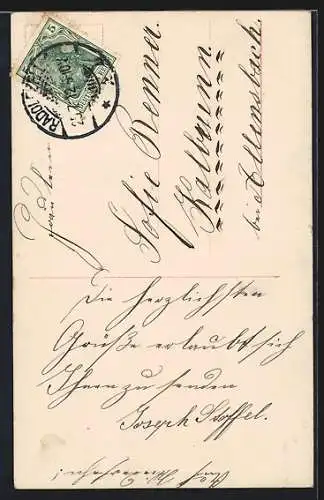 5
RADOLF
Sofie Renner
Kalbrunn
bei Allensbach.
Die herzlichsten
Grüße erlaubt sich
Ihnen zu senden
Joseph Stoffel.
Auf